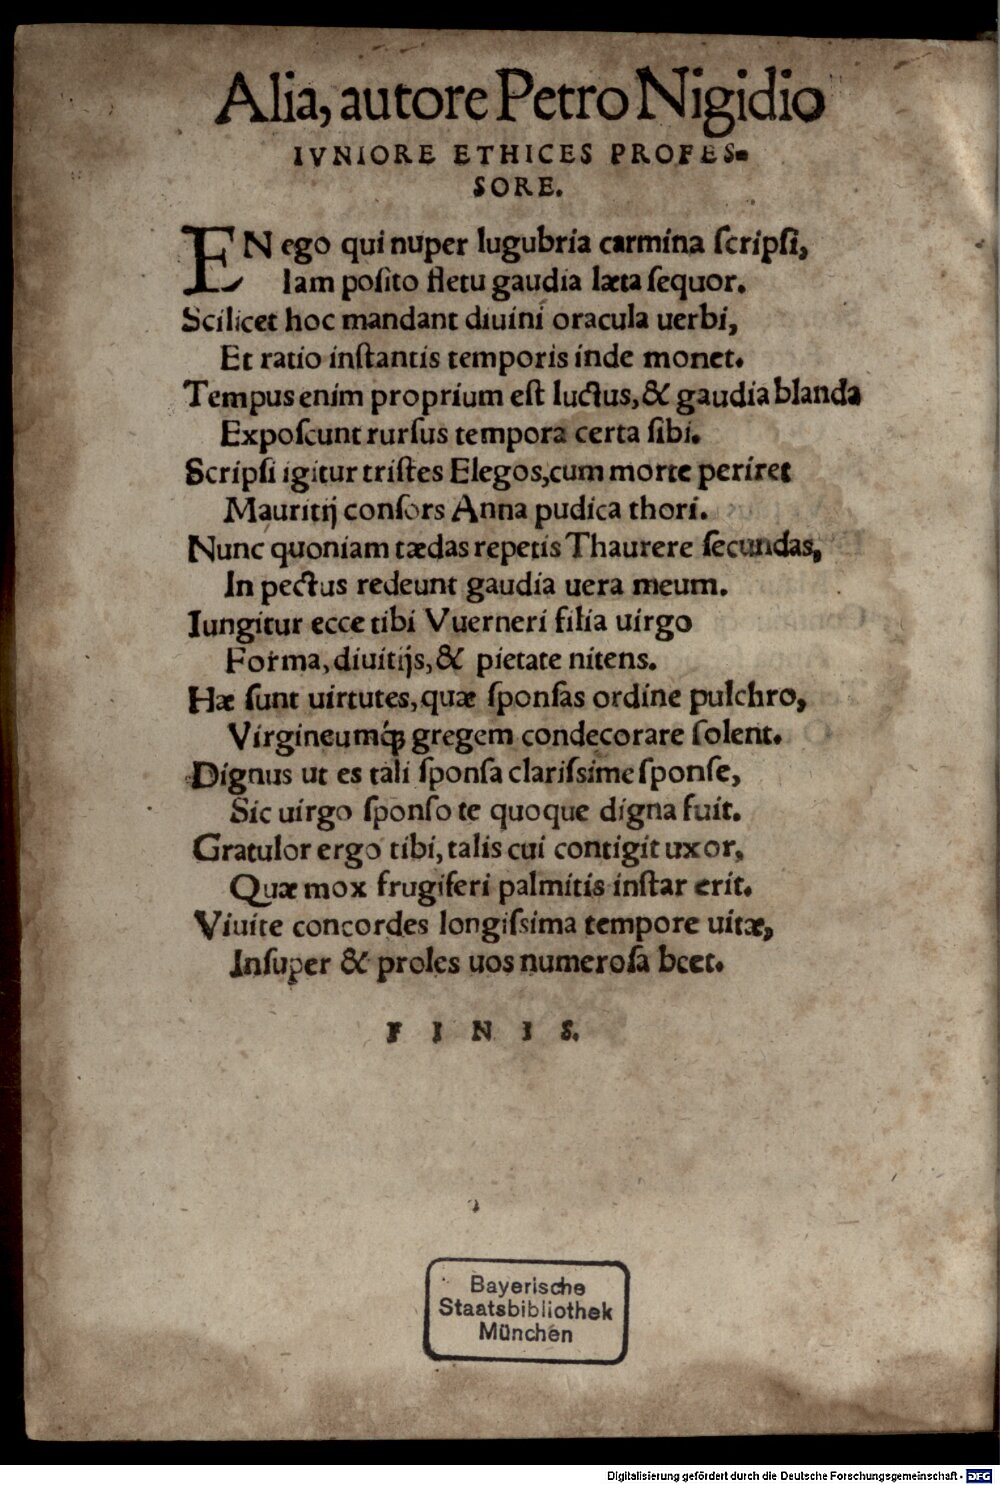 Alia, autore Petro Nigidio
IVNIORE ETHICES PROFES-
SORE.
EN ego qui nuper lugubria carmina ſcripſi,
Iam poſito fletu gaudia læta ſequor.
Scilicet hoc mandant diuini oracula uerbi,
Et ratio inſtantis temporis inde monet.
Tempus enim proprium eſt luctus, & gaudia blanda
Expoſcunt rurſus tempora certa ſibi.
Scripſi igitur triſtes Elegos, cum morte periret
Mauritij conſors Anna pudica thori.
Nunc quoniam tædas repetis Thaurere ſecundas,
In pectus redeunt gaudia uera meum.
Iungitur ecce tibi Vuerneri filia uirgo
Forma, diuitijs, & pietate nitens.
Hæ ſunt uirtutes, quæ ſponſas ordine pulchro,
Virgineumq́ꝫ gregem condecorare ſolent.
Dignus ut es tali ſponſa clariſsime ſponſe,
Sic uirgo ſponſo te quoque digna fuit.
Gratulor ergo tibi, talis cui contigit uxor,
Quæ mox frugiferi palmitis inſtar erit.
Viuite concordes longiſsima tempore uitæ,
Inſuper & proles uos numeroſa beet.
FINIS.
Bayerische
Staatsbibliothek
München
Digitalisierung gefördert durch die Deutsche Forschungsgemeinschaft - DFG